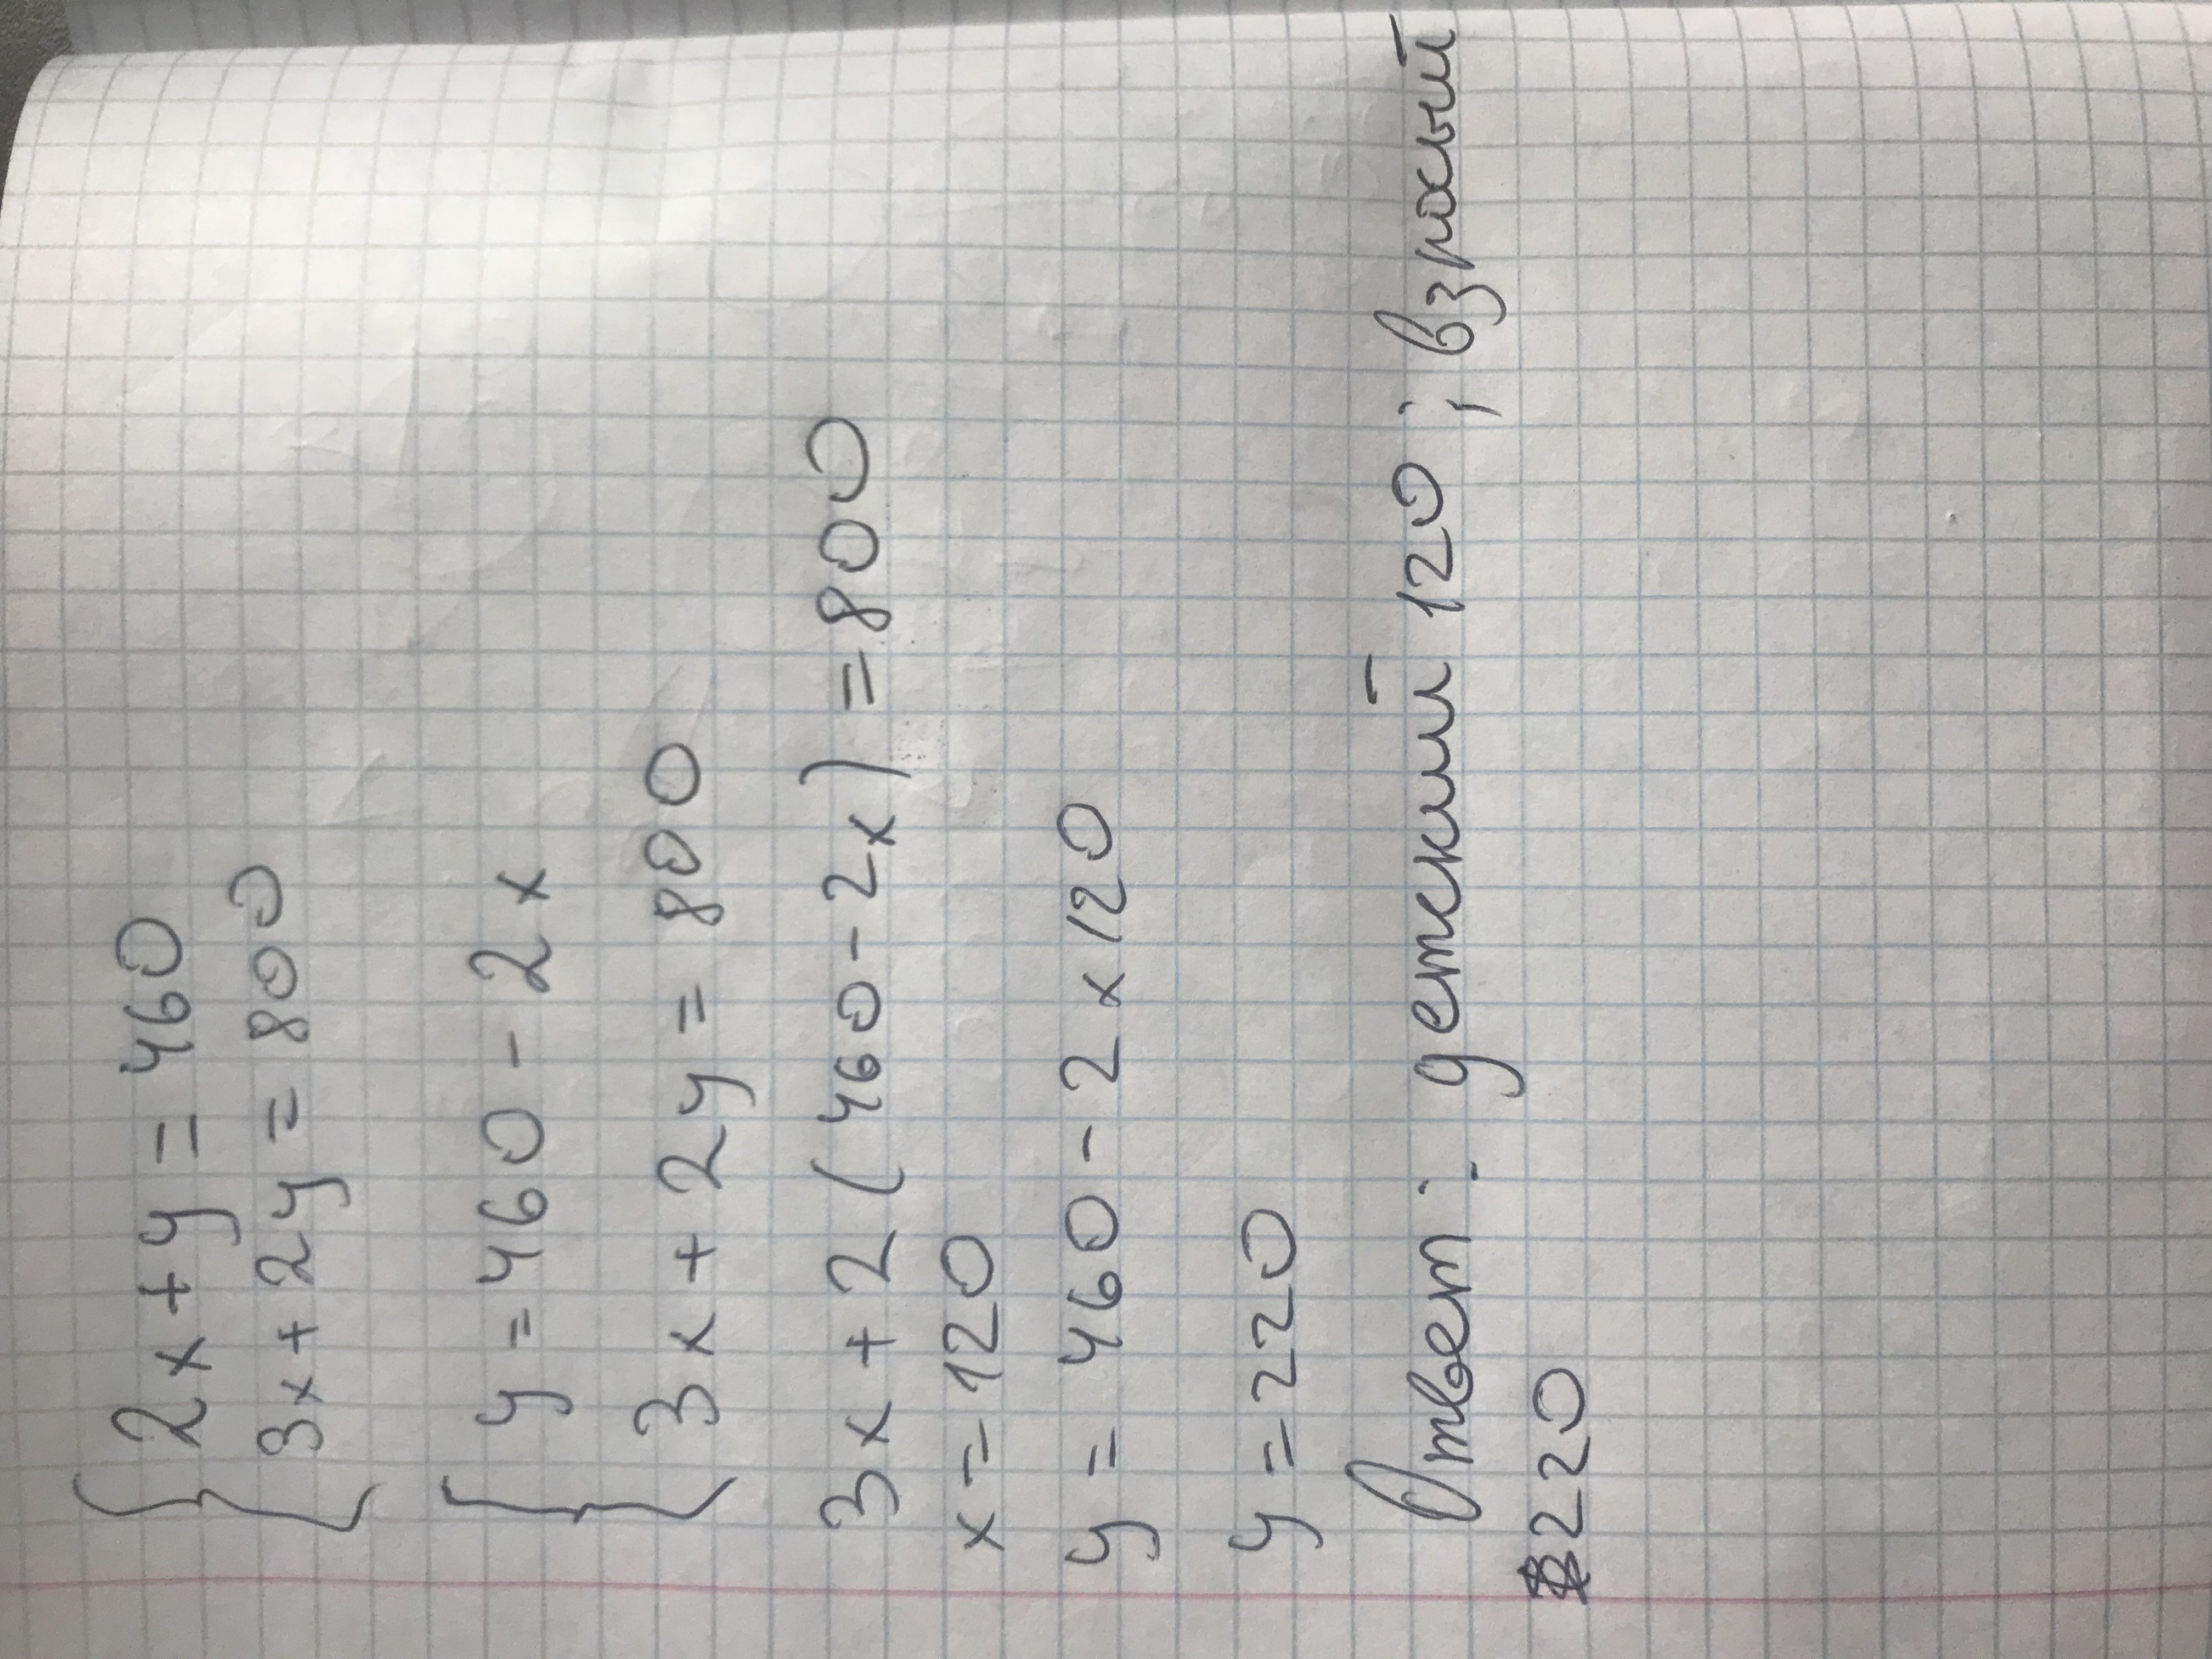 { 2x + y = 460
3x + 2y = 800
{ y = 460 - 2x
3x + 2y = 800
3x + 2 (460 - 2x) = 800
x = 120
y = 460 - 2 x 120
y = 220
Ответ: детский 120; взрослый
220